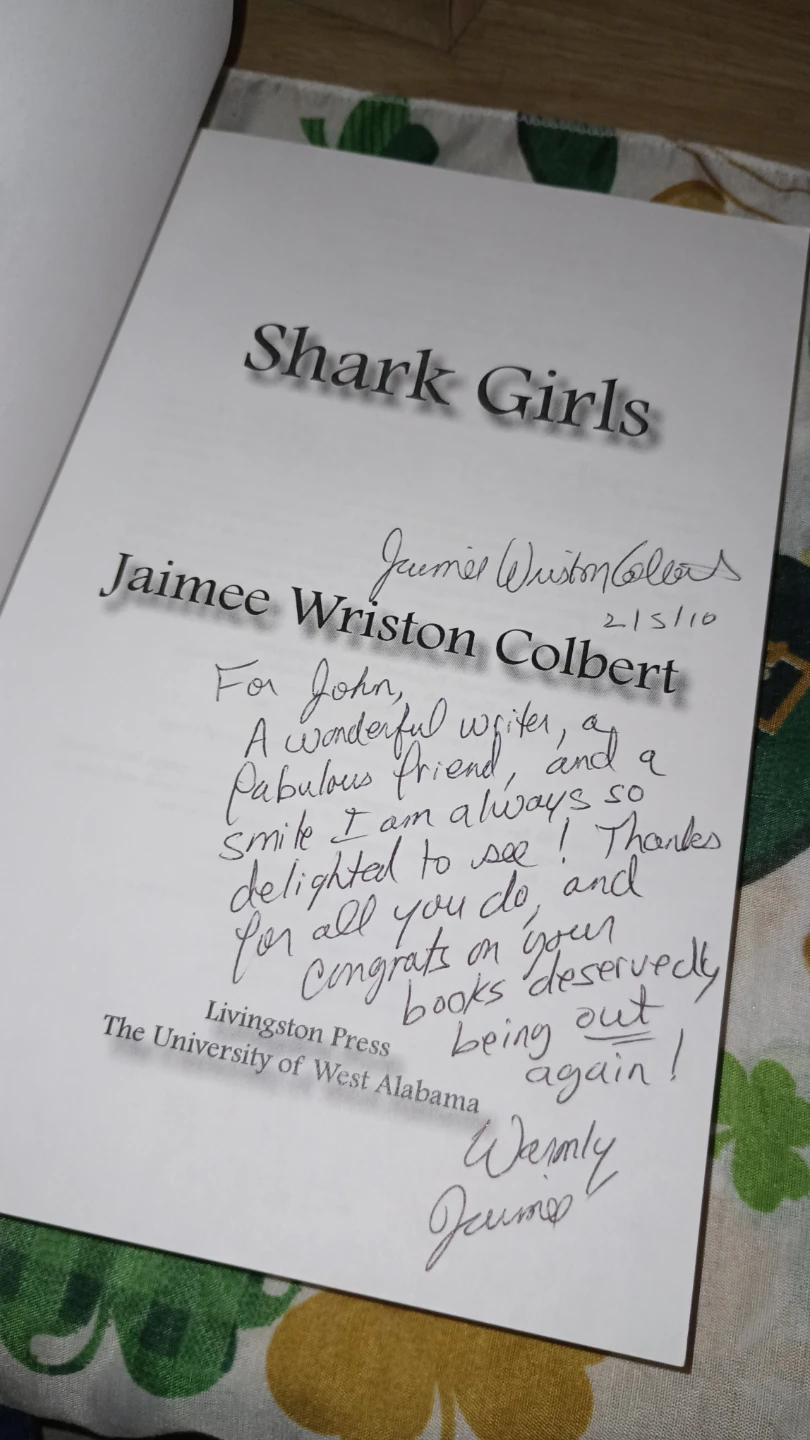 Shark Girls
Jaimee Wriston Colbert
2/5/10
Jaimee Wriston Colbert
For John,
A wonderful writer, a
fabulous friend, and a
smile I am always so
delighted to see! Thanks
for all you do, and
congrats on your
books deservedly
being out
again!
Livingston Press
The University of West Alabama
Warmly
Jaimee